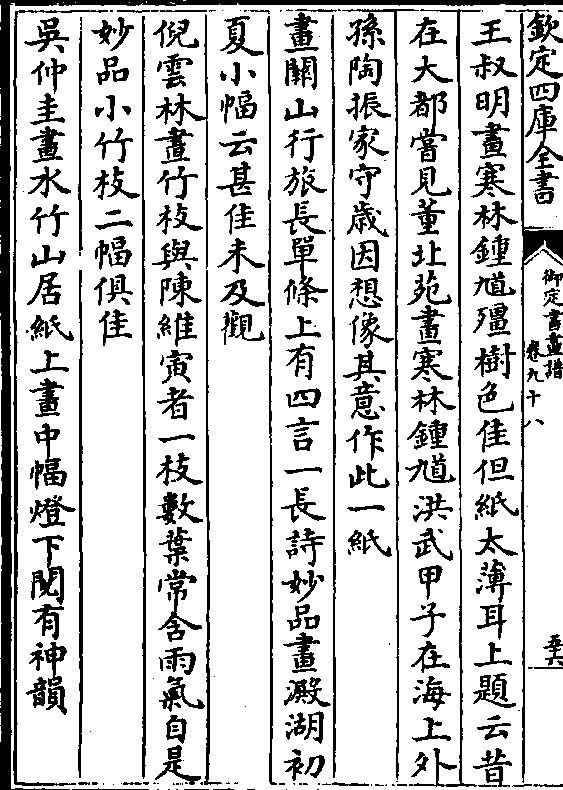 欽定四庫全書
御定書畫譜
卷九十八
五十六
王叔明畫寒林鍾馗殭樹色佳但紙太薄耳上題云昔
在大都嘗見董北苑畫寒林鍾馗洪武甲子在海上外
孫陶振家守歲因想像其意作此一紙
畫關山行旅長單條上有四言一長詩妙品畫澱湖初
夏小幅云甚佳未及觀
倪雲林畫竹枝與陳維寅者一枝數葉常含雨氣自是
妙品小竹枝二幅俱佳
吳仲圭畫水竹山居紙上畫中幅燈下閱有神韻